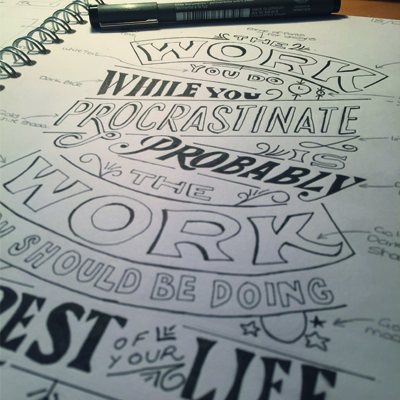 THE
WORK
YOU DO
WHILE YOU
PROCRASTINATE
IS
PROBABLY
THE
WORK
SHOULD BE DOING
REST OF YOUR LIFE